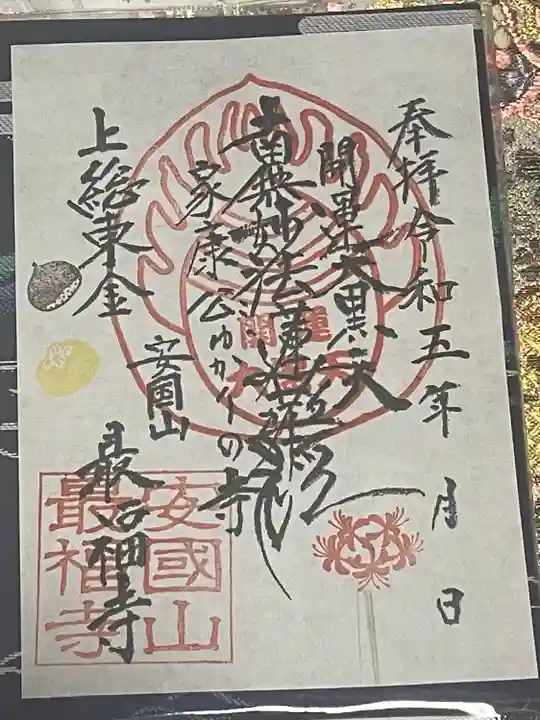 奉拝 令和五年 月 日
開運大黒天
南無妙法蓮華経
家康公ゆかりの寺
安國山
上総東金
最福寺
開運
安國山
最福寺